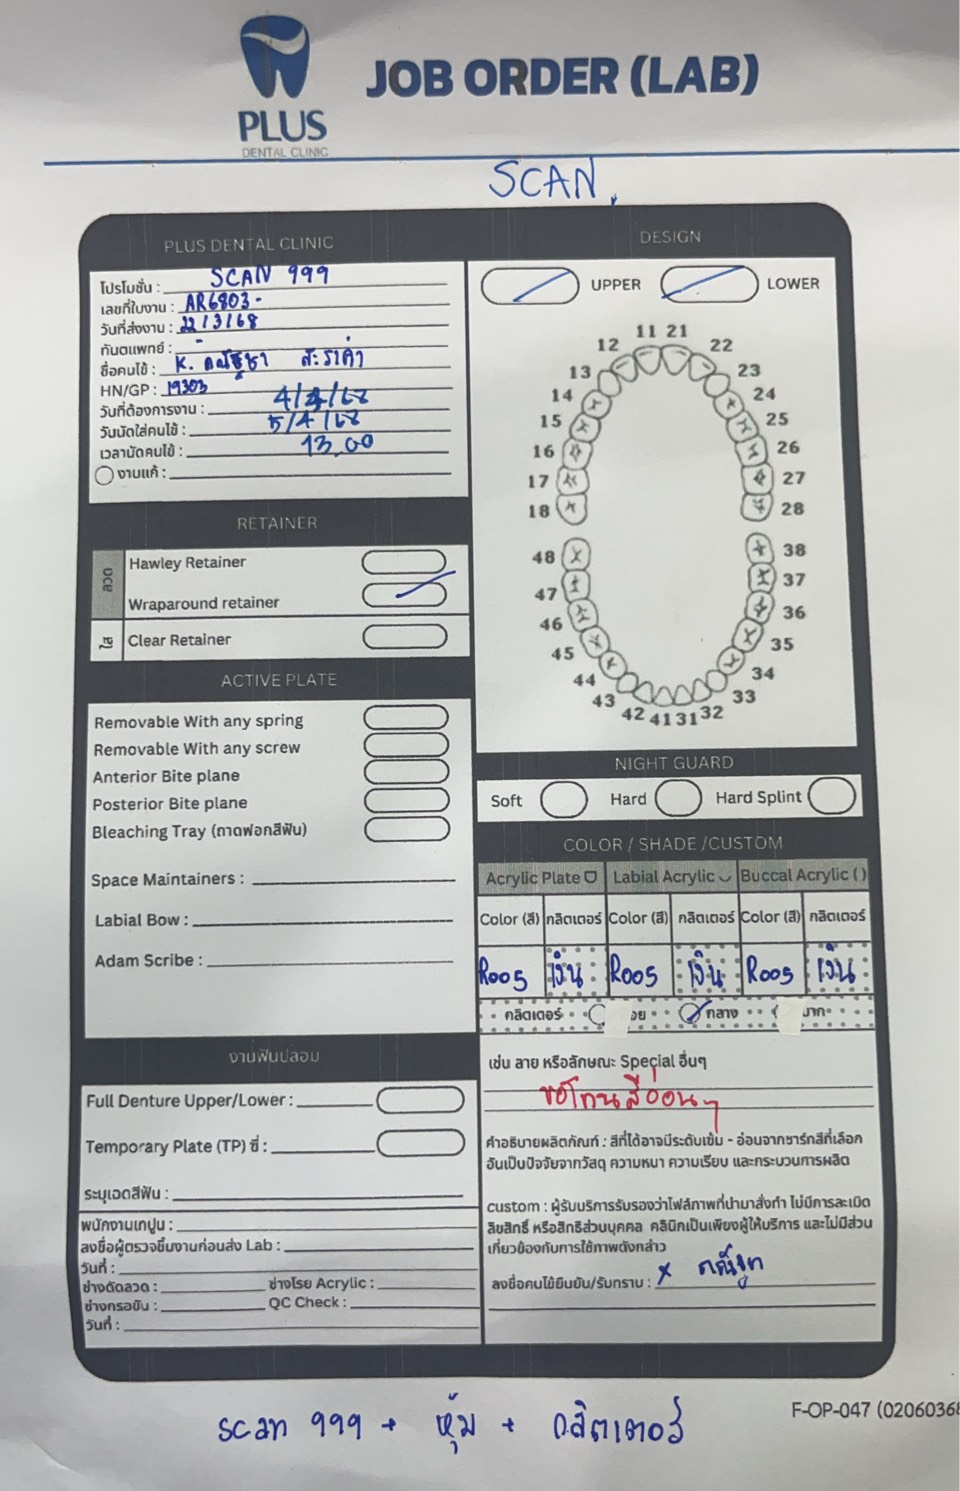 PLUS
DENTAL CLINIC
JOB ORDER (LAB)
SCAN
PLUS DENTAL CLINIC
โปรโมชั่น : SCAN 999
เลขที่ใบงาน : AR6803-
วันที่ส่งงาน : 22/3/68
ทันตแพทย์ : -
ชื่อคนไข้ : K.
HN/GP : 19303
วันที่ต้องการงาน : 4/4/68
วันนัดใส่คนไข้ : 5/4/68
เวลานัดคนไข้ : 13.00
งานแก้ :
RETAINER
ลวด
Hawley Retainer
Wraparound retainer
ใส
Clear Retainer
ACTIVE PLATE
Removable With any spring
Removable With any screw
Anterior Bite plane
Posterior Bite plane
Bleaching Tray (ถาดฟอกสีฟัน)
Space Maintainers :
Labial Bow :
Adam Scribe :
งานฟันปลอม
Full Denture Upper/Lower :
Temporary Plate (TP) ซี่ :
ระบุเฉดสีฟัน :
พนักงานเทปูน :
ลงชื่อผู้ตรวจชิ้นงานก่อนส่ง Lab :
วันที่ :
ช่างดัดลวด : ช่างโรย Acrylic :
ช่างกรอขัด : QC Check :
วันที่ :
DESIGN
UPPER LOWER
11 21
12 22
13 23
14 24
15 25
16 26
17 27
18 28
48 38
47 37
46 36
45 35
44 34
43 33
42 41 31 32
NIGHT GUARD
Soft Hard Hard Splint
COLOR / SHADE /CUSTOM
Acrylic Plate Labial Acrylic Buccal Acrylic ( )
Color (สี) กลิตเตอร์ Color (สี) กลิตเตอร์ Color (สี) กลิตเตอร์
R005 เงิน R005 เงิน R005 เงิน
กลิตเตอร์ อย กลาง มาก
เช่น ลาย หรือลักษณะ Special อื่นๆ
ขอโทนสีอ่อนๆ
คำอธิบายผลิตภัณฑ์ : สีที่ได้อาจมีระดับเข้ม - อ่อนจากชาร์ทสีที่เลือก
อันเป็นปัจจัยจากวัสดุ ความหนา ความเรียบ และกระบวนการผลิต
custom : ผู้รับบริการรับรองว่าไฟล์ภาพที่นำมาสั่งทำ ไม่มีการละเมิด
ลิขสิทธิ์ หรือสิทธิส่วนบุคคล คลินิกเป็นเพียงผู้ให้บริการ และไม่มีส่วน
เกี่ยวข้องกับการใช้ภาพดังกล่าว
ลงชื่อคนไข้ยืนยัน/รับทราบ : x
F-OP-047 (02060368
scan 999 + หุ้ม + กลิตเตอร์